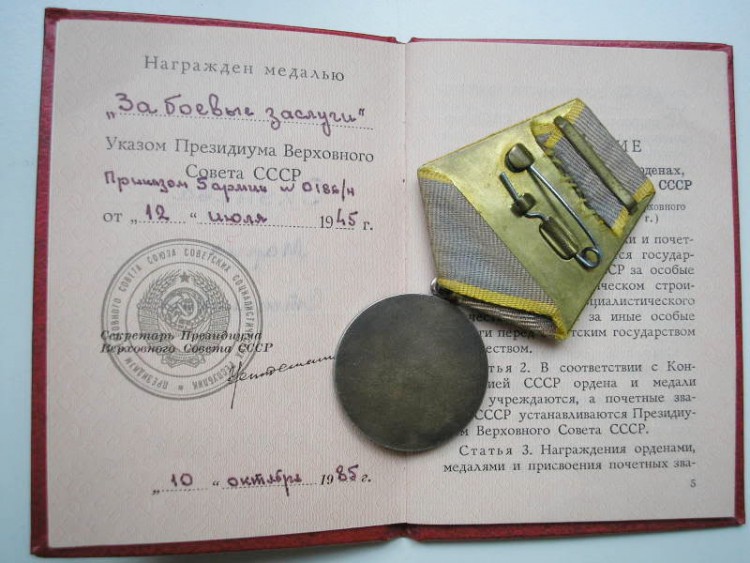 Награжден медалью
„За боевые заслуги“
Указом Президиума Верховного
Совета СССР
Приказом 5 армии № 0186/н
от „12“ июля 1945 г.
Секретарь Президиума
Верховного Совета СССР
„10“ октября 1985 г.
ИЕ
орденах,
СССР
г.)
и и почет-
ся государ-
СР за особые
ческом строи-
циалистического
за иные особые
ти перед тским государством
чеством.
татья 2. В соответствии с Кон-
цией СССР ордена и медали
учреждаются, а почетные зва-
СССР устанавливаются Президиу-
м Верховного Совета СССР.
Статья 3. Награждения орденами,
медалями и присвоения почетных зва-
5